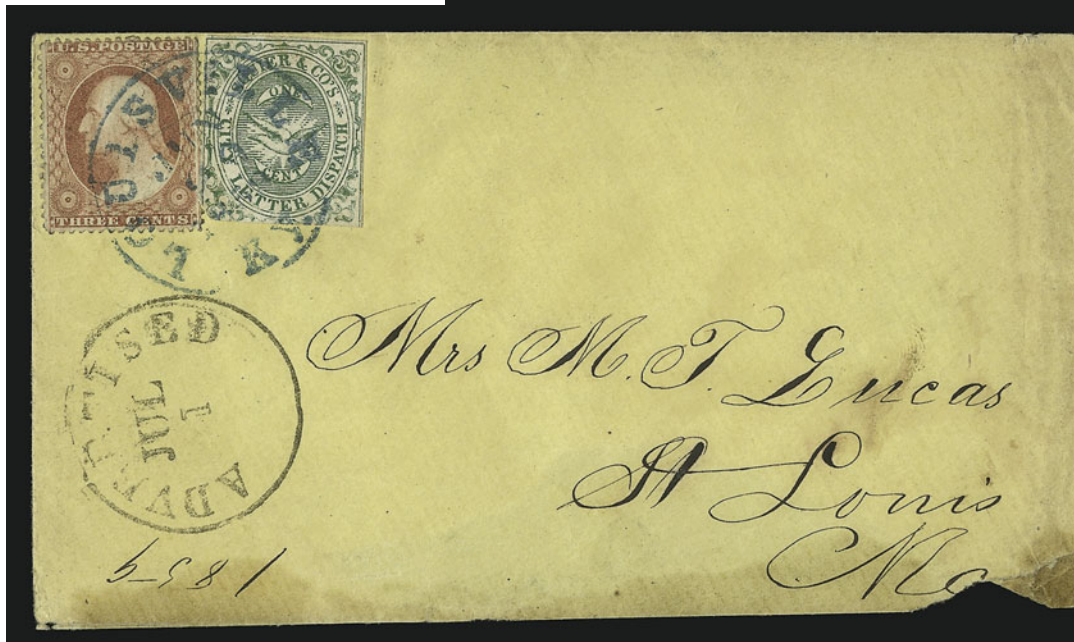 U.S. POSTAGE
THREE CENTS
SQUIER & CO'S
CITY LETTER DISPATCH
ONE
CENT
LOUISVILLE KY
ADVERTISED
JUL
1
Mrs M. T. Lucas
St Louis
Mo
1859